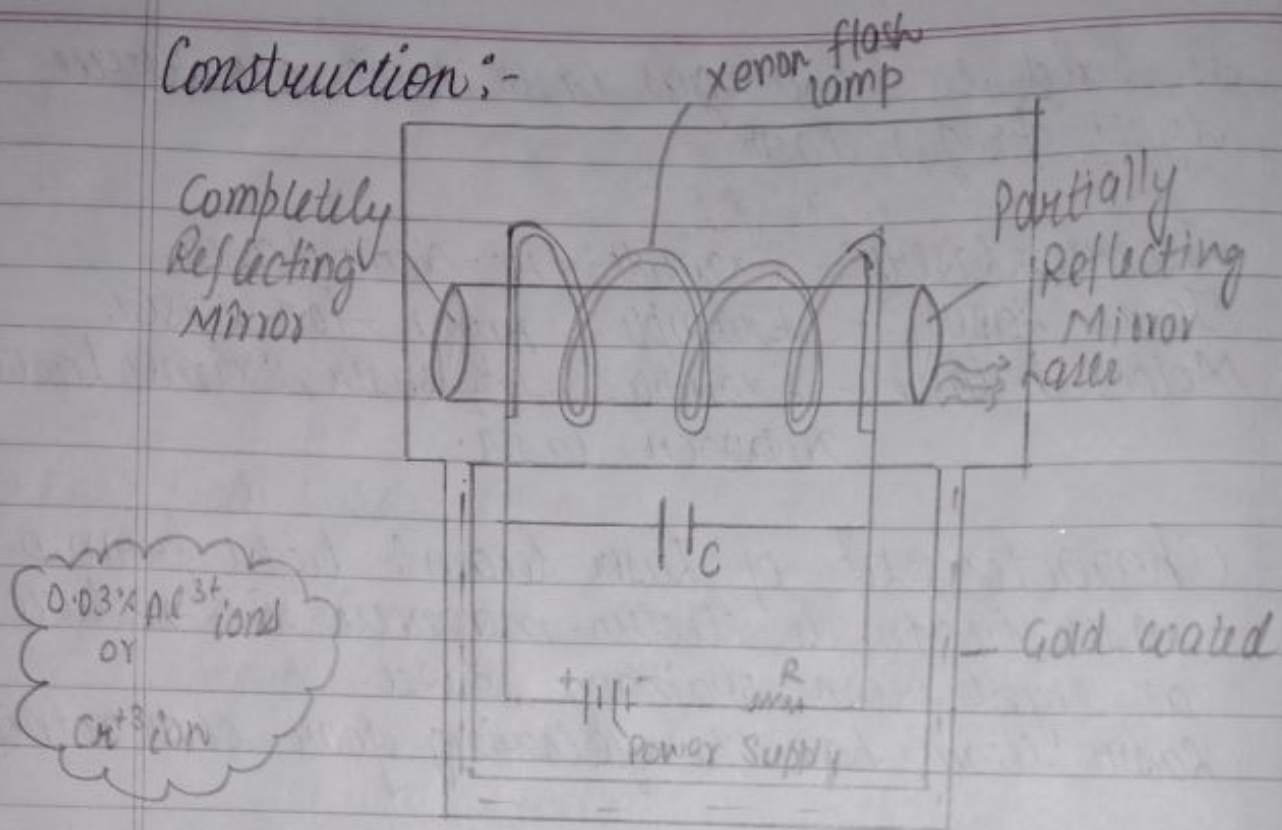 Construction:-
xenon flash
lamp
Completely
Reflecting
Mirror
Partially
Reflecting
Mirror
Laser
C
0.03% Al³⁺ ions
or
Cr⁺³ ion
Gold coated
+ -
R
Power Supply